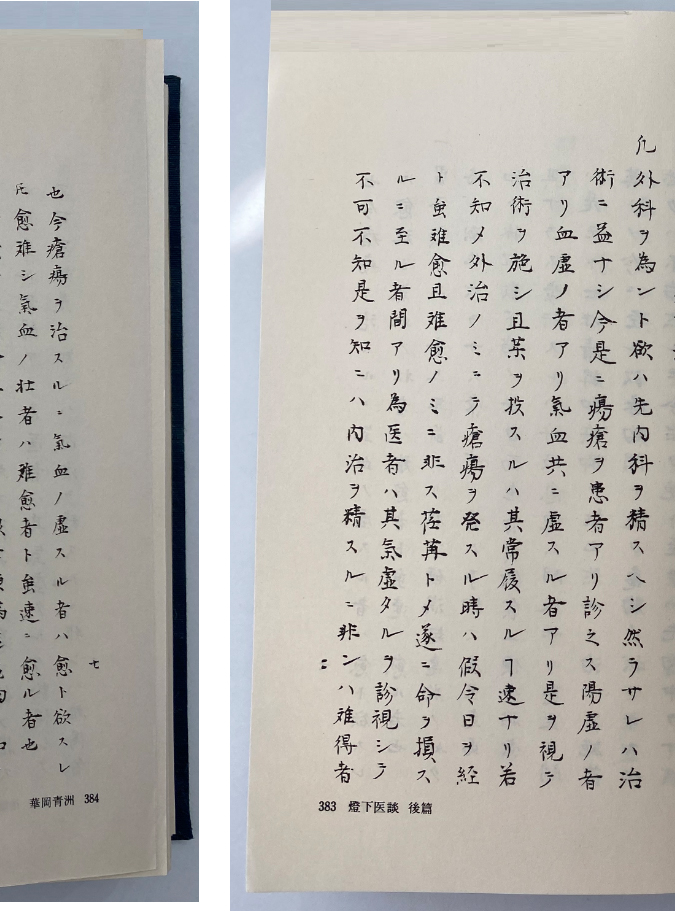 凡外科ヲ為ント欲ハ先内科ヲ精スヘシ然ラサレハ治
術ニ益ナシ今是ニ瘍瘡ヲ患者アリ診之ス陽虚ノ者
アリ血虚ノ者アリ氣血共ニ虚スル者アリ是ヲ視テ
治術ヲ施シ且薬ヲ投スルハ其常履スルヿ速ナリ若
不知メ外治ノミニテ瘡瘍ヲ発スル時ハ假令日ヲ経
ト虽難愈且難愈ノミニ非ス荏苒トメ遂ニ命ヲ損ス
ルニ至ル者間アリ為医者ハ其氣虚タルヲ診視シテ
不可不知是ヲ知ニハ内治ヲ精スルニ非ンハ難得者
383 燈下医談 後篇
七
也今瘡瘍ヲ治スルニ氣血ノ虚スル者ハ愈ト欲スレ
𪜈愈難シ氣血ノ壮者ハ難愈者ト虽速ニ愈ル者也
華岡青洲 384